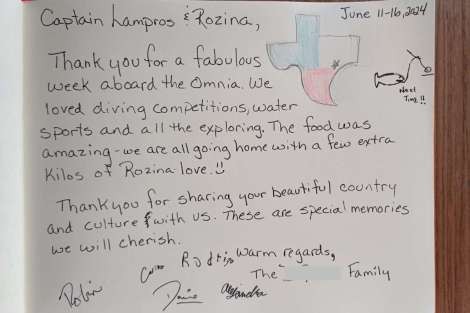 Captain Lampros & Rozina,
June 11-16, 2024
Thank you for a fabulous
week aboard the Omnia. We
loved diving competitions, water
sports and all the exploring. The food was
amazing - we are all going home with a few extra
Kilos of Rozina love.
Next
Time !!
Thank you for sharing your beautiful country
and culture with us. These are special memories
we will cherish.
Warm regards,
The Family
Robin
Alejandra